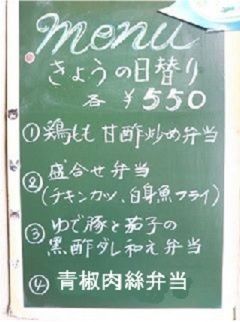 menu
きょうの日替り
各 ¥550
①鶏もも 甘酢炒め弁当
②盛合せ弁当
(チキンカツ、白身魚フライ)
③ゆで豚と茄子の
黒酢ダレ和え弁当
④青椒肉絲弁当